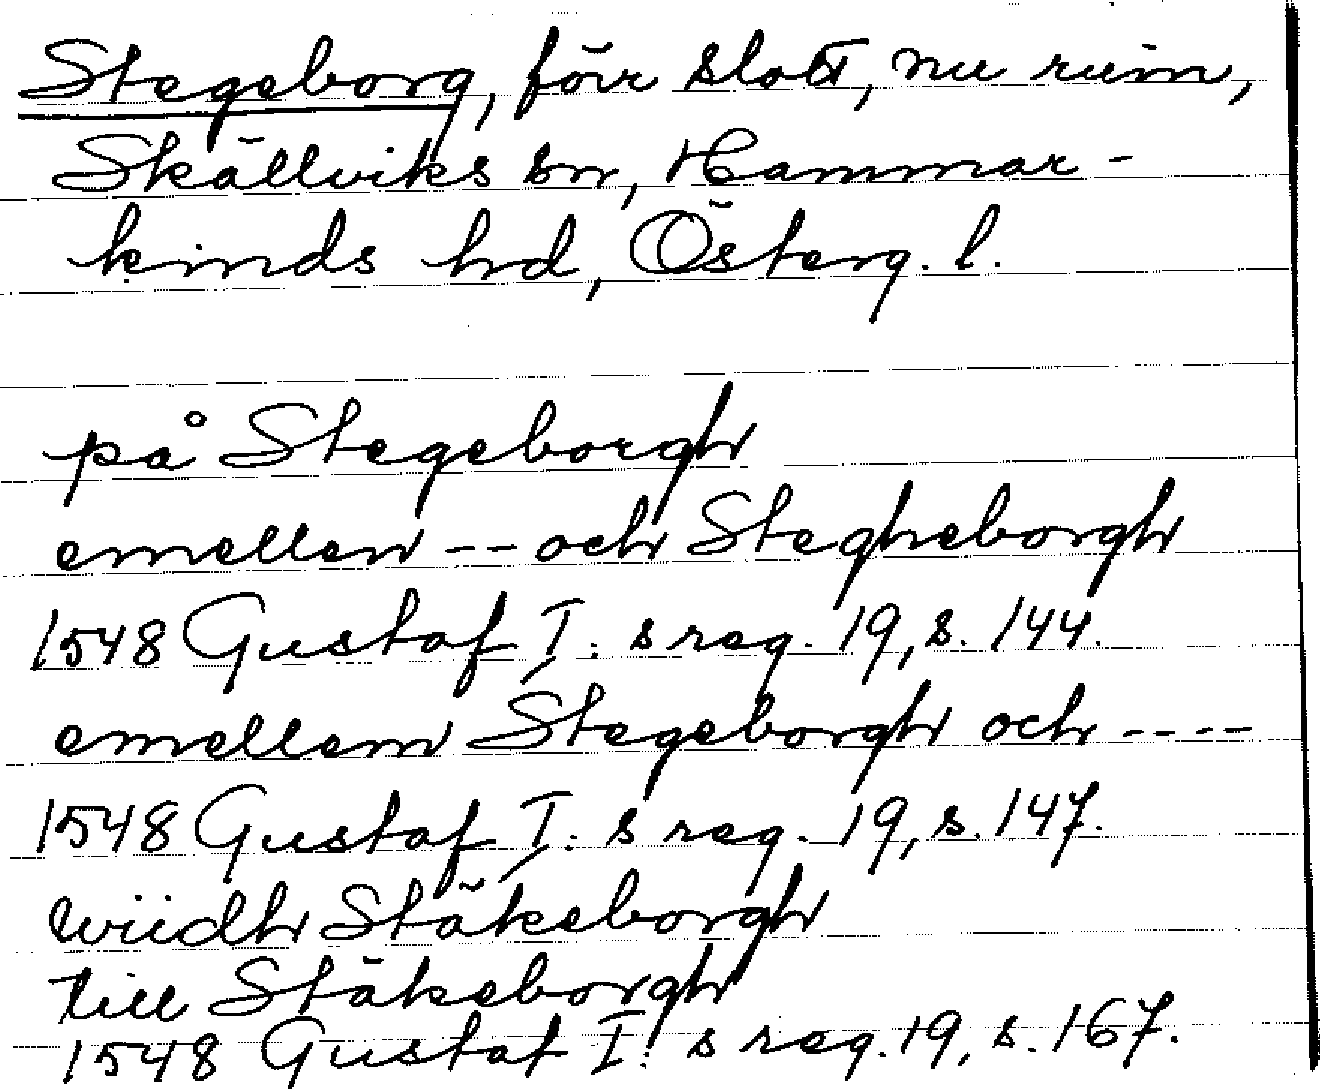 Stegeborg, förr slott, nu ruin,
Skällviks sn, Hammar-
kinds hd, Österg. l.
på Stegeborgh
emellen -- och Stegheborgh
1548 Gustaf I: s reg. 19, s. 144.
emellem Stegeborgh och ----
1548 Gustaf I: s reg. 19, s. 147.
wiidh Stäkeborgh
till Stäkeborgh
1548 Gustaf I: s reg. 19, s. 167.